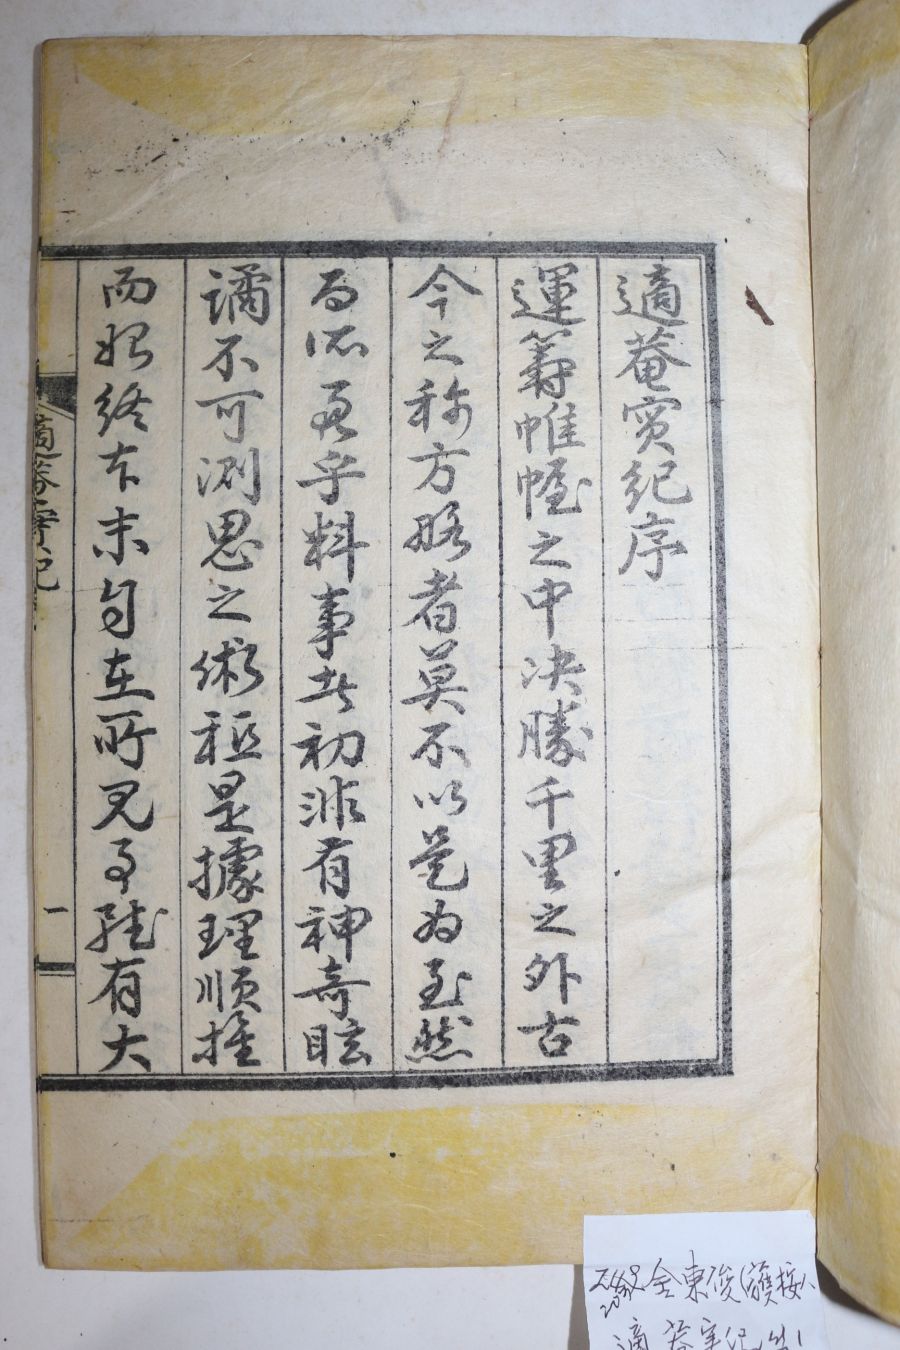 適菴實紀序
運籌帷幄之中决勝千里之外古
今之称方略者莫不以是為至然
而究其料事於初非有神奇眩
譎不可測思之術秖是據理順推
而始終本末自在所見了雖有大
適菴實紀
一
金東俊
適菴實紀